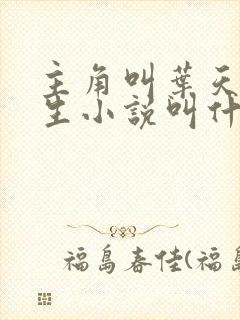 主角叫葉天
生小說叫什
福島春佳(福島